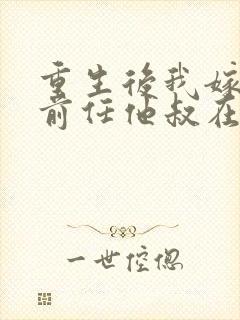 重生後我嫁
前任他叔在
一世倥偬